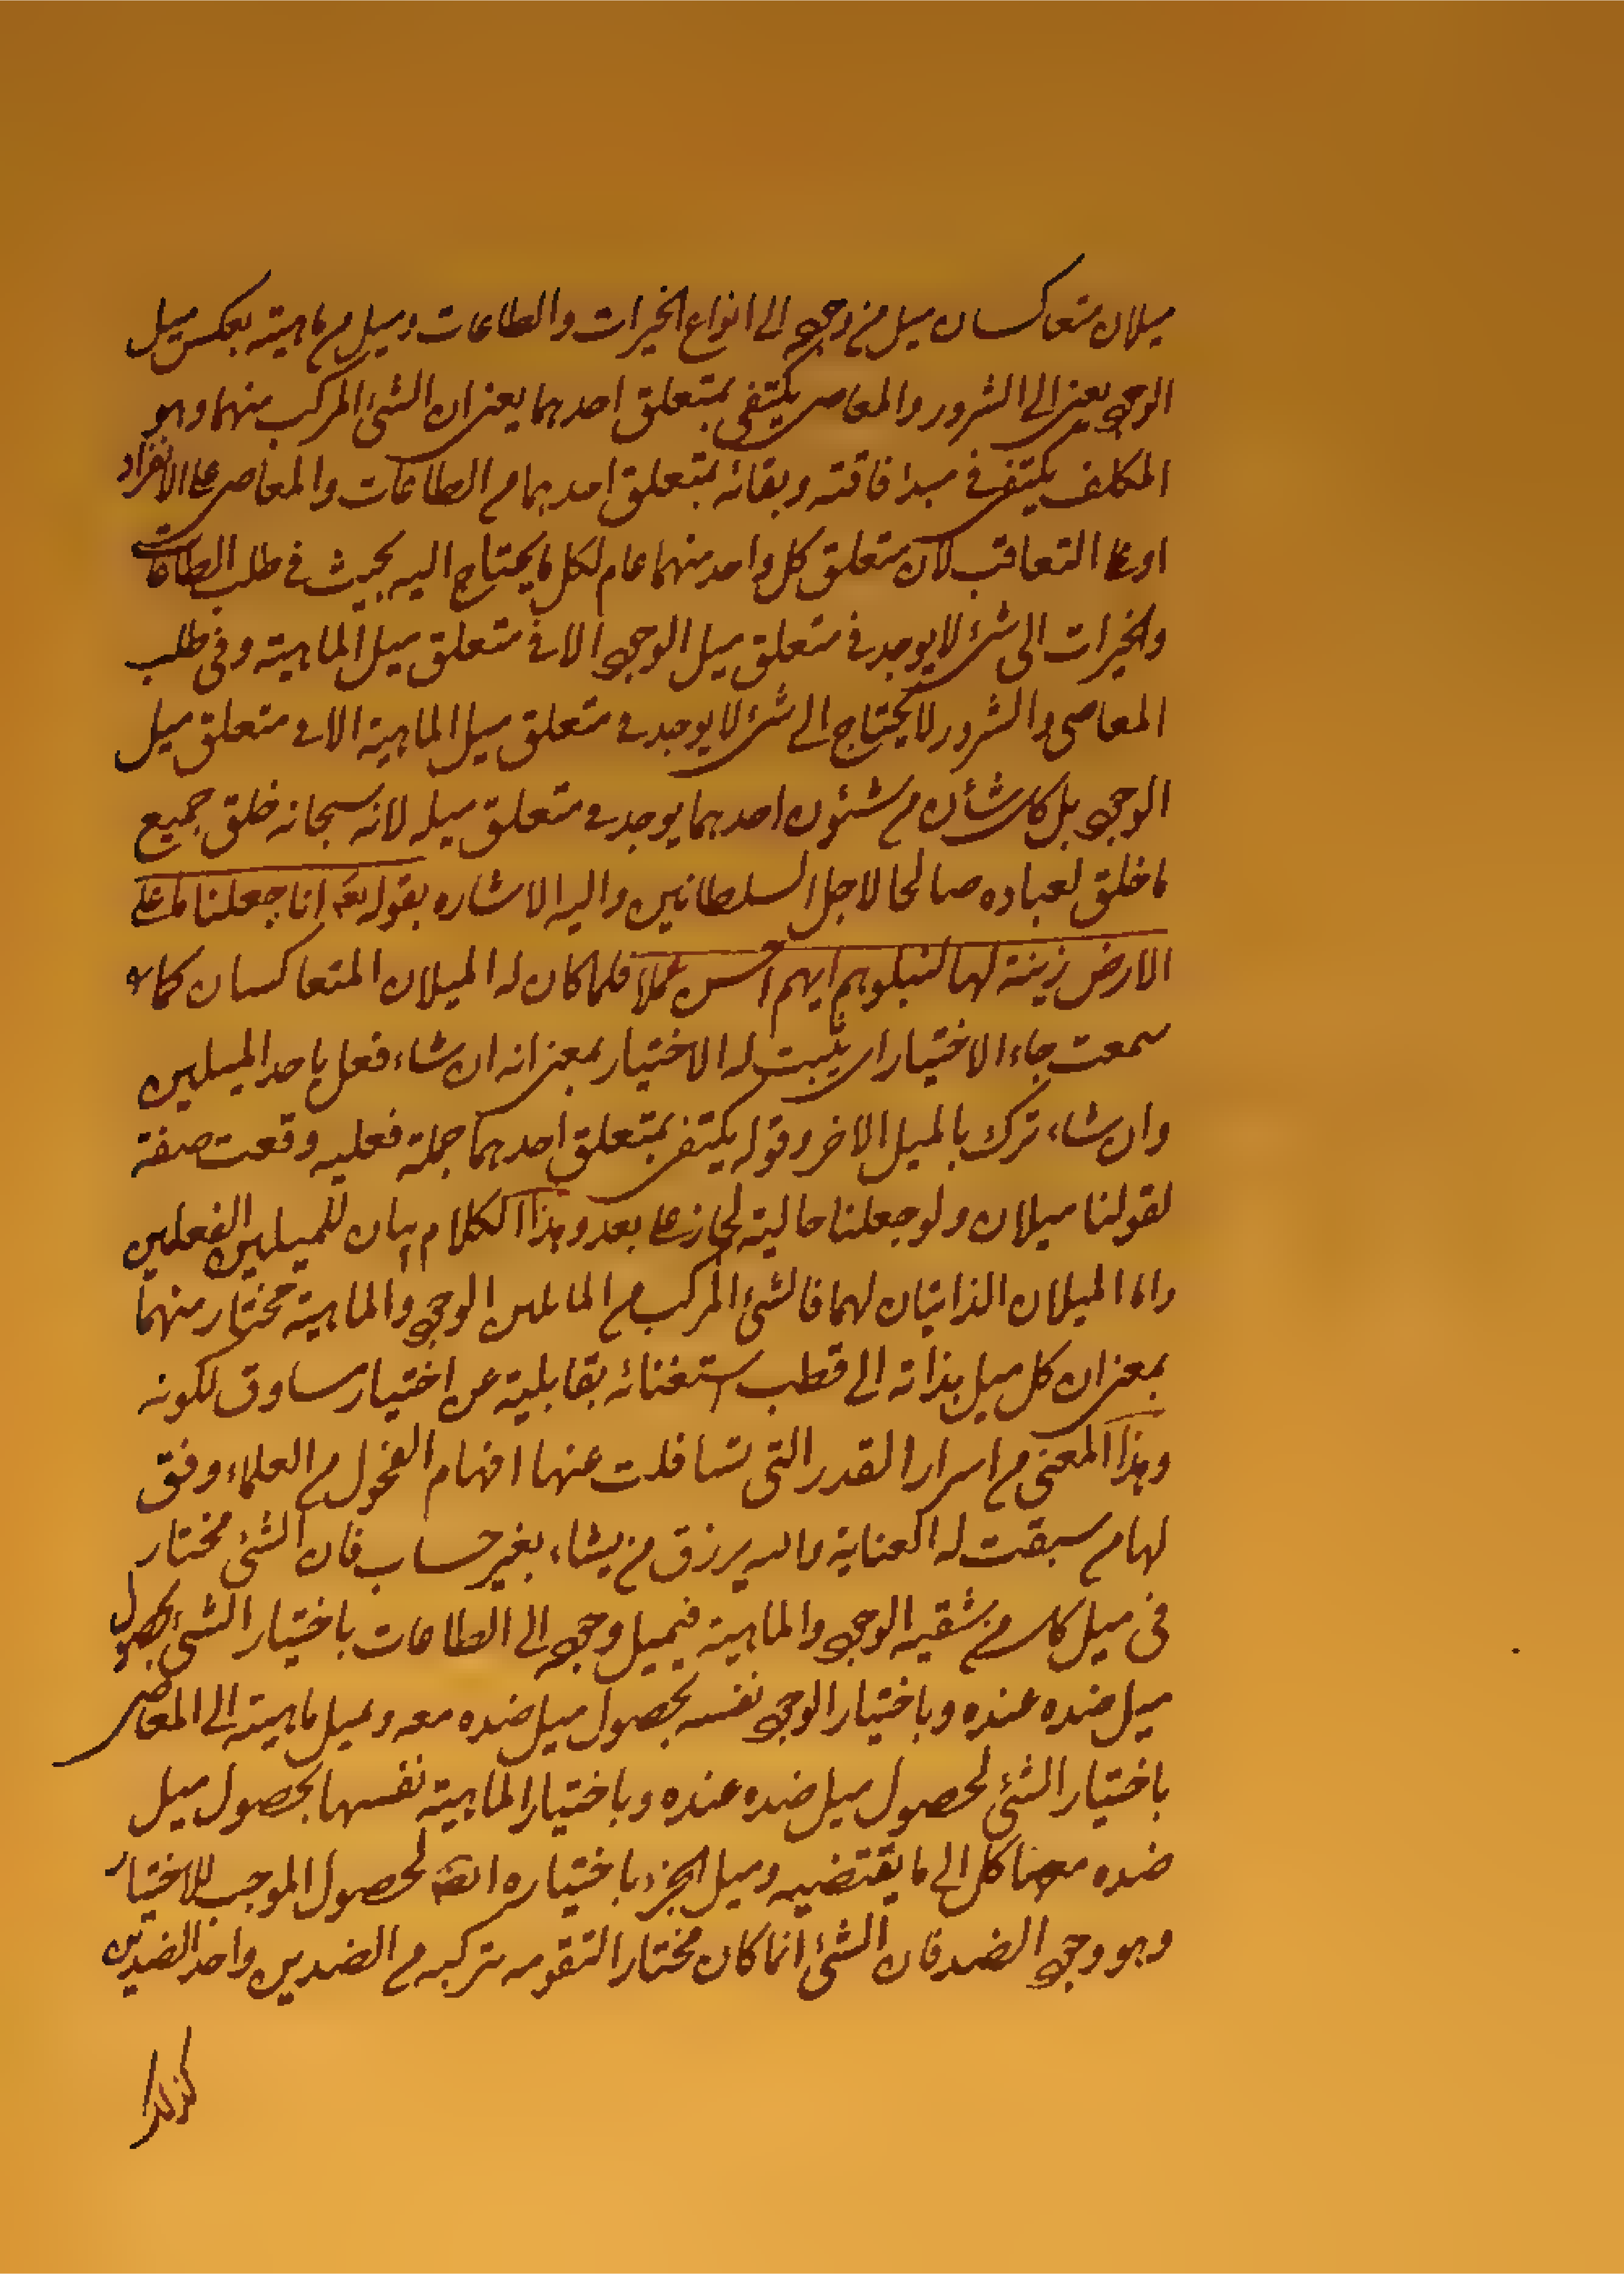 ميلان متعاكسان ميل من وجوده الى انواع الخيرات والطاعات وميل من ماهيته بعكس ميل
الوجود يعنى الى الشرور والمعاصى يكتفى بمتعلق احدهما يعنى ان الشئ المركب منهما وهو
المكلف يكتفى فى سد فاقته وبقائه بمتعلق احدهما من الطاعات والمعاصى على الانفراد
او على التعاقب لان متعلق كل واحد منهما عام لكل ما يحتاج اليه بحيث فى طلب الطاعات
والخيرات الى شئ لا يوجد فى متعلق ميل الوجود الا فى متعلق ميل الماهية وفى طلب
المعاصى والشرور لا يحتاج الى شئ لا يوجد فى متعلق ميل الماهية الا فى متعلق ميل
الوجود بل كل شأن من شئون احدهما يوجد فى متعلق ميله لانه سبحانه خلق جميع
ما خلق لعباده صالحا لاجل السلطانين واليه الاشاره بقوله تع انا جعلنا ما على
الارض زينة لها لنبلوهم ايهم احسن عملا فلما كان له الميلان المتعاكسان كما
سمعت جاء الاختيار اى يثبت له الاختيار بمعنى انه ان شاء فعل باحد الميلين
وان شاء ترك بالميل الاخر وقوله يكتفى بمتعلق احدهما جملة فعليه وقعت صفة
لقولنا ميلان ولو جعلنا حالية لجاز على بعد وهذا الكلام بيان للميلين الفعلين
واما الميلان الذاتيان لهما فالشئ المركب من المائلين الوجود والماهية مختار منهما
بمعنى ان كل ميل بذاته الى قطب استغنائه بقابلية عن اختيار مساوق لكونه
وهذا المعنى من اسرار القدر التى تسافلت عنها افهام الفحول من العلماء وفق
لها من سبقت له العناية والله يرزق من يشاء بغير حساب فان الشئ مختار
فى ميل كل من شقيه الوجود والماهية فيميل وجوده الى الطاعات باختيار الشئ لحصول
ميل ضده عنده وباختيار الوجود نفسه لحصول ميل ضده معه ويميل ماهيته الى المعاصى
باختيار الشئ لحصول ميل ضده عنده وباختيار الماهية نفسها لحصول ميل
ضده معها كل الى ما يقتضيه وميل الجزء باختياره لحصول الموجب للاختيار
وهو وجود الضد فان الشئ انما كان مختارا لتقومه بتركبه من الضدين واحد الضدين